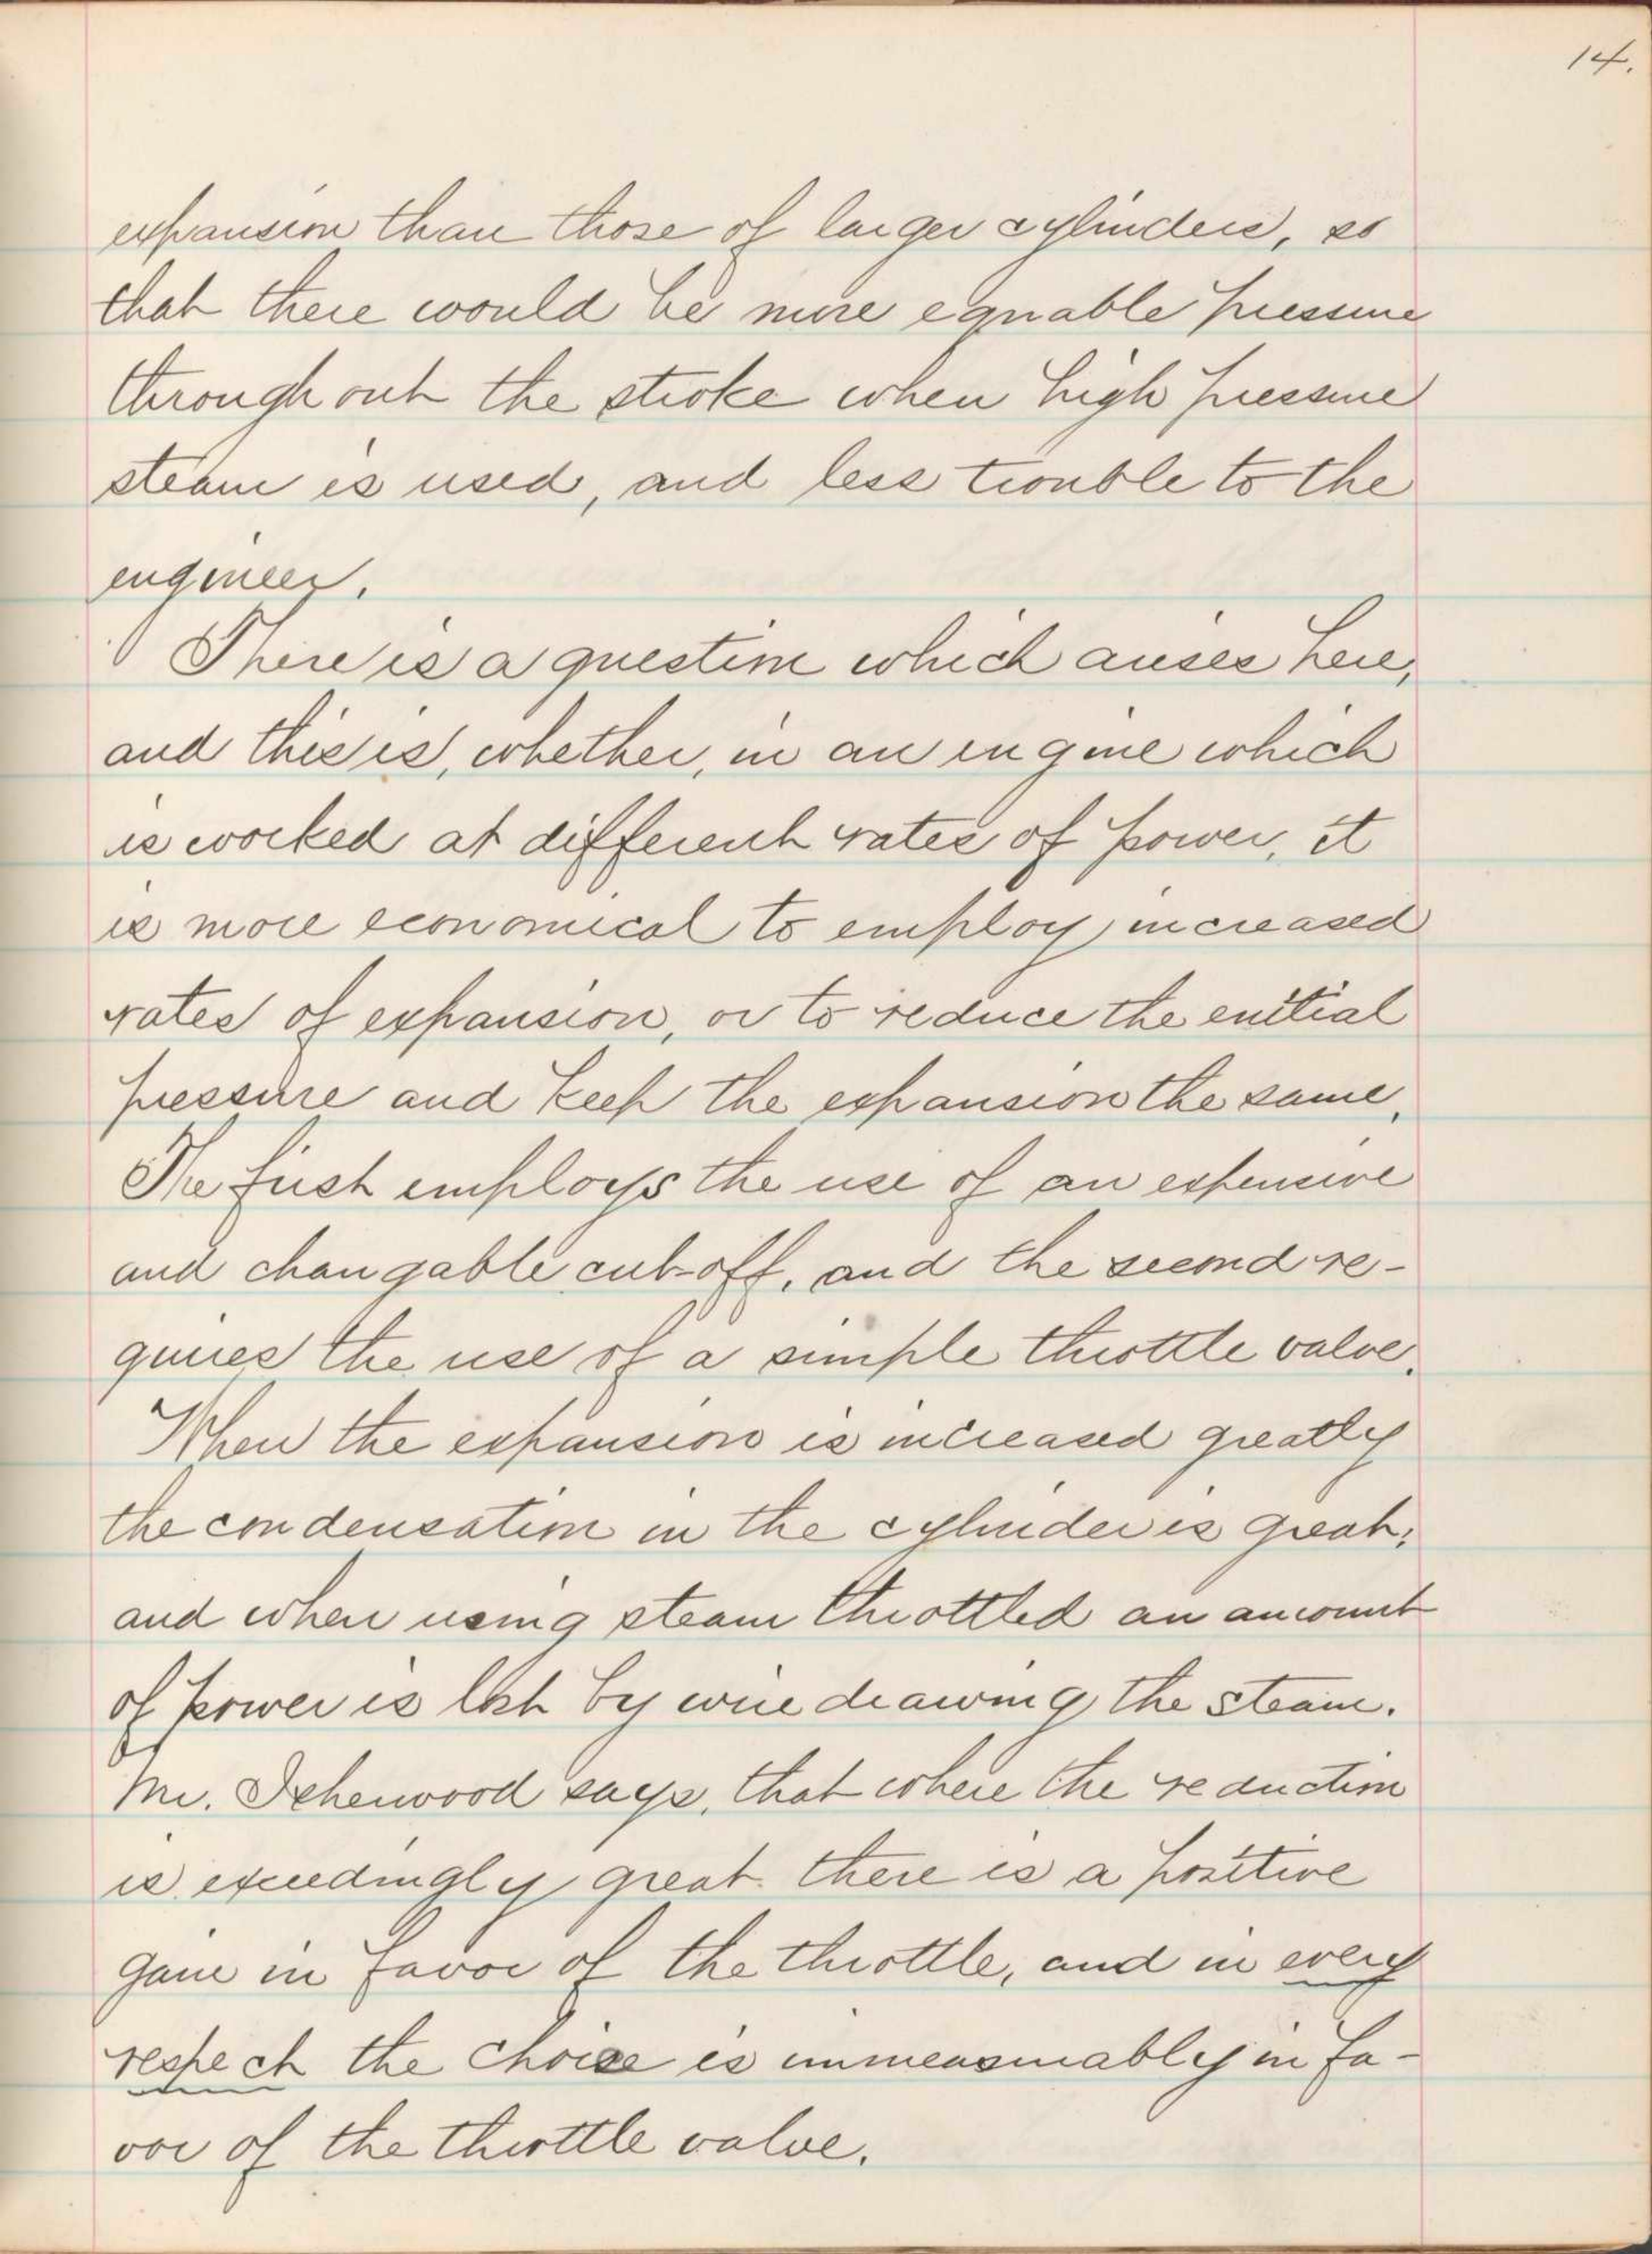 14.
expansion than those of larger cylinders, so
that there would be more equable pressure
throughout the stroke when high pressure
steam is used, and less trouble to the
engineer.
There is a question which arises here,
and this is, whether, in an engine which
is worked at different rates of power, it
is more economical to employ increased
rates of expansion, or to reduce the enitial
pressure and keep the expansion the same.
The first employs the use of an expensive
and changable cut-off, and the second re-
quires the use of a simple throttle valve.
When the expansion is increased greatly
the condensation in the cylinder is great;
and when using steam throttled an amount
of power is lost by wire drawing the steam.
Mr. Isherwood says, that where the reduction
is exceedingly great there is a positive
gain in favor of the throttle, and in every
respect the choise is immeasurably in fa-
vor of the throttle valve.